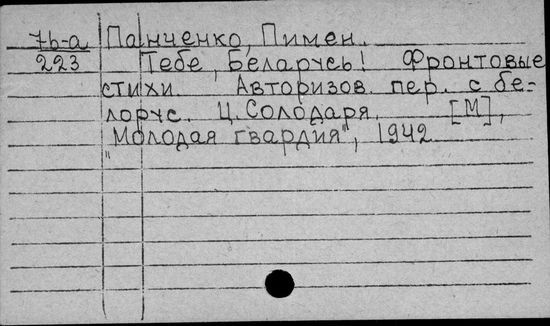 7б-а Панченко, Пимен.
223 Тебе, Беларусь! Фронтовые
стихи. Авторизов. пер. с бе-
лорус. Ц. Солодаря. [М],
"Молодая гвардия", 1942